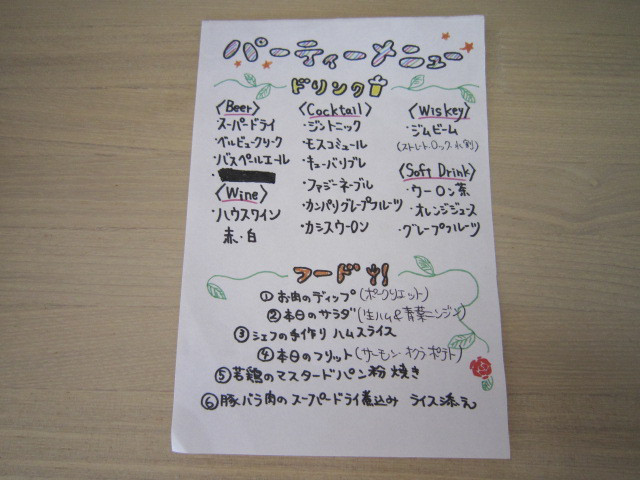 パーティーメニュー
ドリンク
〈Beer〉
・スーパードライ
・ベルビュークリーク
・バスペールエール
〈Wine〉
・ハウスワイン
赤・白
〈Cocktail〉
・ジントニック
・モスコミュール
・キューバリブレ
・ファジーネーブル
・カンパリグレープフルーツ
・カシスウーロン
〈Wiskey〉
・ジムビーム
(ストレート、ロック、水割)
〈Soft Drink〉
・ウーロン茶
・オレンジジュース
・グレープフルーツ
フード
① お肉のディップ(ポークリエット)
② 本日のサラダ(生ハム&青菜ニンジン)
③ シェフの手作り ハムスライス
④ 本日のフリット(サーモン・オクラ・ポテト)
⑤ 若鶏のマスタードパン粉焼き
⑥ 豚バラ肉のスーパードライ煮込み ライス添え